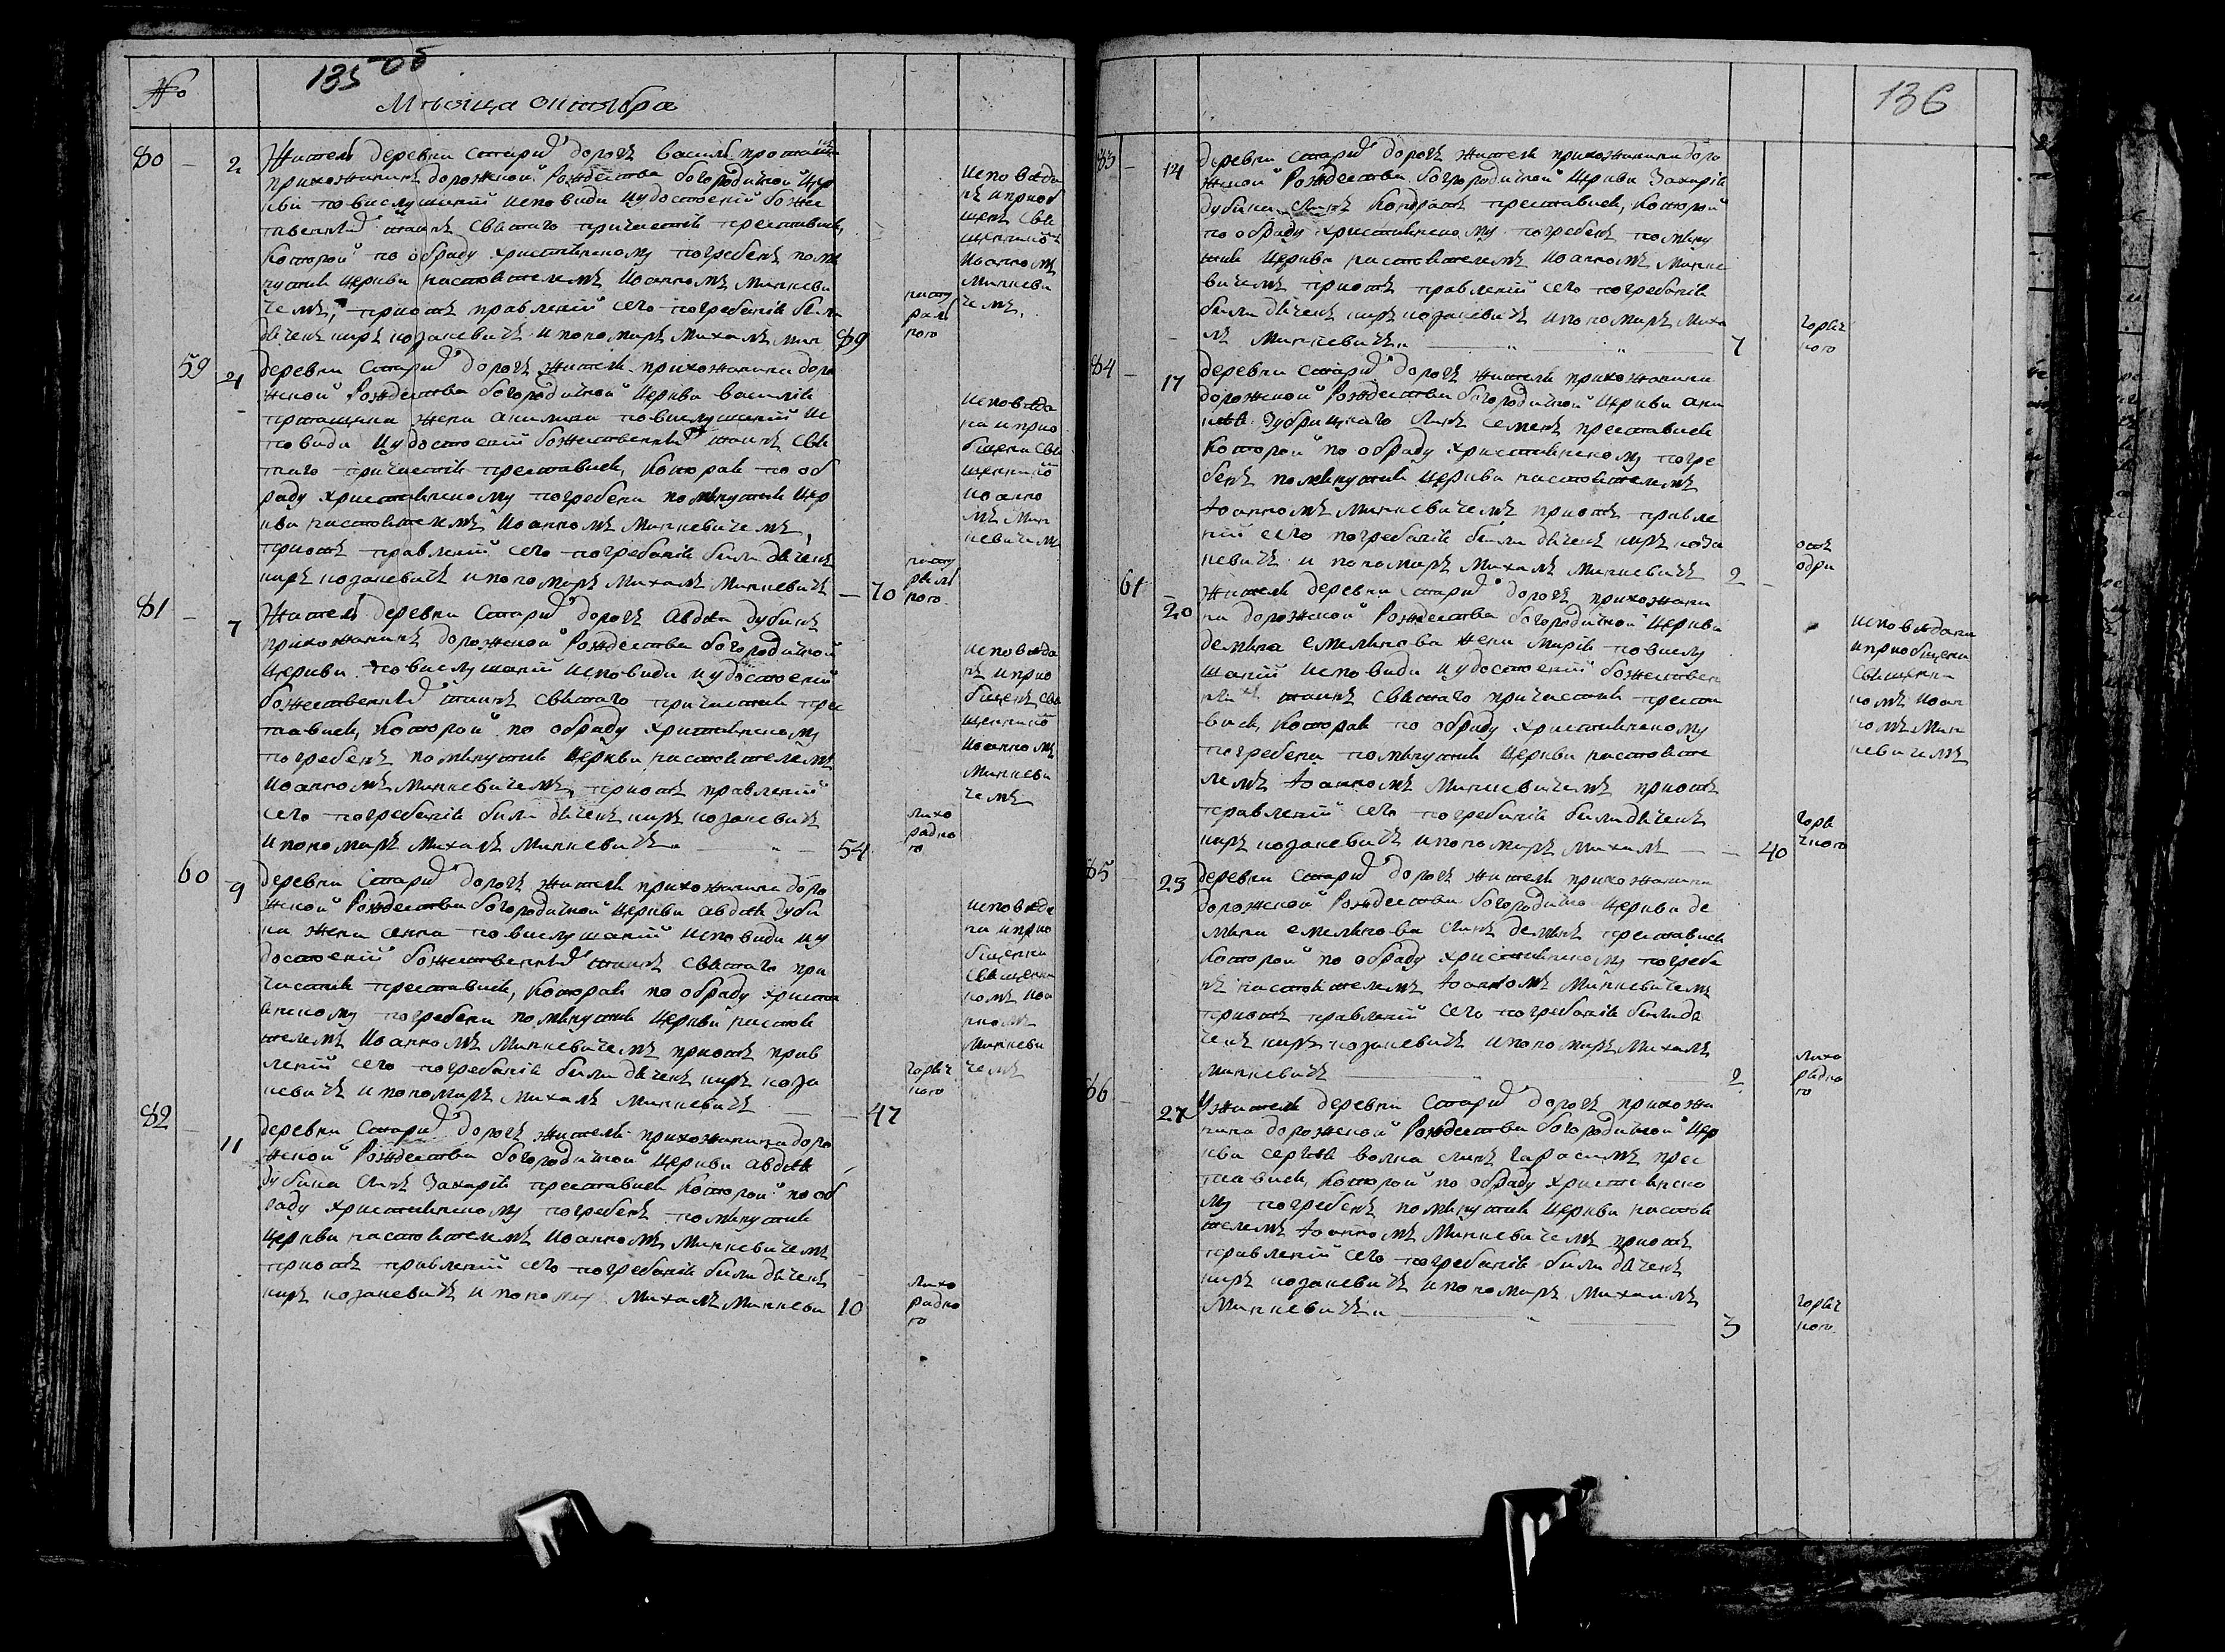 №
135 об
Мѣсяца октября
80 — 2 Житель деревни Старыхъ дорогъ василь
прихожанинъ дорожской Рождества богородичной цер
кви по выслушаніи исповѣди и удостоеніи боже
ственныхъ таинъ святаго причастія преставися,
которой по обряду христіянскому погребенъ помя
нутыя церкви настоятелемъ Иоанномъ Минкеви
чемъ, при отправленіи сего погребенія были
дьячекъ киръ козакевичъ и пономаръ Михалъ Мин 89
нату
раль
ного
исповѣда
нъ и приоб
щенъ свя
щенникомъ
Иоанномъ
Минкеви
чемъ.
59 4 деревни Старыхъ дорогъ жителя прихожанина доро
жской Рождества богородичной церкви василія
жена акилина по выслушаніи ис
повѣди и удостоеніи божественныхъ таинъ свя
таго причастія преставися, которая по об
ряду христіянскому погребена помянутыя цер
кви настоятелемъ Иоанномъ Минкевичемъ,
при отправленіи сего погребенія были дьячекъ
киръ козакевичъ и пономаръ Михалъ Минкевичъ — 70
нату
раль
ного
исповѣда
на и прио
бщена свя
щенникомъ
иоанно
мъ Мин
кевичемъ
81 — 7 Житель деревни Старыхъ дорогъ Авдѣй дубина
прихожанинъ дорожской Рождества богородичной
церкви по выслушаніи исповѣди и удостоеніи
божественныхъ таинъ святаго причастія прес
тавися, которой по обряду христіянскому
погребенъ помянутыя церкви настоятелемъ
Иоанномъ Минкевичемъ, при отправленіи
сего погребенія были дьячекъ киръ козакевичъ
и пономаръ Михалъ Минкевичъ „ — „ — 54
лихо
радко
го
исповѣда
нъ и прио
бщенъ свя
щенникомъ
Иоанномъ
Минкеви
чемъ
60 9 деревни Старыхъ дорогъ жителя прихожанина доро
жской Рождества богородичной церкви авдѣя дуби
ны жена анна по выслушаніи исповѣди и у
достоеніи божественныхъ таинъ святаго при
частія преставися, которая по обряду христі
янскому погребена помянутыя церкви настоя
телемъ Иоанномъ Минкевичемъ при отправ
леніи сего погребенія были дьячекъ киръ коза
кевичъ и пономаръ Михалъ Минкевичъ — — 47
горяч
кого
исповѣда
на и прио
бщенна
священни
комъ Иоа
нномъ
Минкеви
чемъ
82 — 11 деревни Старыхъ дорогъ жителя прихожанина доро
жской Рождества богородичной церкви авдѣя
дубина сынъ Захарій преставися которой по об
ряду христіянскому погребенъ помянутыя
церкви настоятелемъ Иоанномъ Минкевичемъ
при отправленіи сего погребенія были дьячекъ
киръ козакевичъ и пономар Михалъ Минкеви 10
лихо
радко
го
136
83 — 14 деревни Старыхъ дорогъ жителя прихожанина доро
жской Рождества богородичной церкви Захарія
дубины сынъ Кондратъ преставися, которой
по обряду христіянскому погребенъ помяну
тыя церкви настоятелемъ Иоанномъ Минке
вичемъ при отправленіи сего погребенія
были дьячекъ киръ козакевичъ и пономаръ Миха
лъ Минкевичъ „ — „ — „ — 7
горяч
кого
84 — 17 деревни Старыхъ дорогъ жителя прихожанина
дорожской Рождества богородичной церкви
сынъ семенъ преставися
которой по обряду христіянскому погре
бенъ помянутыя церкви настоятелемъ
Иоанномъ Минкевичемъ при отправле
ніи сего погребенія были дьячекъ киръ коза
кевичъ и пономаръ Михалъ Минкевичъ 2 —
отъ
одры
61 20 Жителя деревни Старыхъ дорогъ прихожани
на дорожской Рождества богородичной церкви
демяна емелянова жена марія по выслу
шаніи исповѣди и удостоеніи божествен
ныхъ таинъ святаго причастія преста
вися, которая по обряду христіянскому
погребена помянутыя церкви настояте
лемъ Иоанномъ Минкевичемъ при от
правленіи сего погребенія были дьячекъ
киръ козакевичъ и пономаръ Михалъ — — 40
горя
чкого
исповѣдана
и приобщена
священни
комъ Иоан
номъ Мин
кевичемъ
85 — 23 деревни Старыхъ дорогъ жителя прихожанина
дорожской Рождества богородично церкви де
мяна емелянова сынъ демянъ преставися
которой по обряду христіянскому погребе
нъ настоятелемъ Иоанномъ Минкевичемъ
при отправленіи сего погребенія были дья
чекъ киръ козакевичъ и пономаръ Михалъ
Минкевичъ — 2
лихо
радко
го
86 — 27 У жителя деревни Старыхъ дорогъ прихожа
нина дорожской Рождества богородичной цер
кви сергѣя волка сынъ гарасимъ прес
тавися, которой по обряду христіянско
му погребенъ помянутыя церкви настоя
телемъ Иоанномъ Минкевичемъ при от
правленіи сего погребенія были дьячекъ
киръ козакевичъ и пономаръ Михаилъ
Минкевичъ „ — „ — 3
горяч
кого